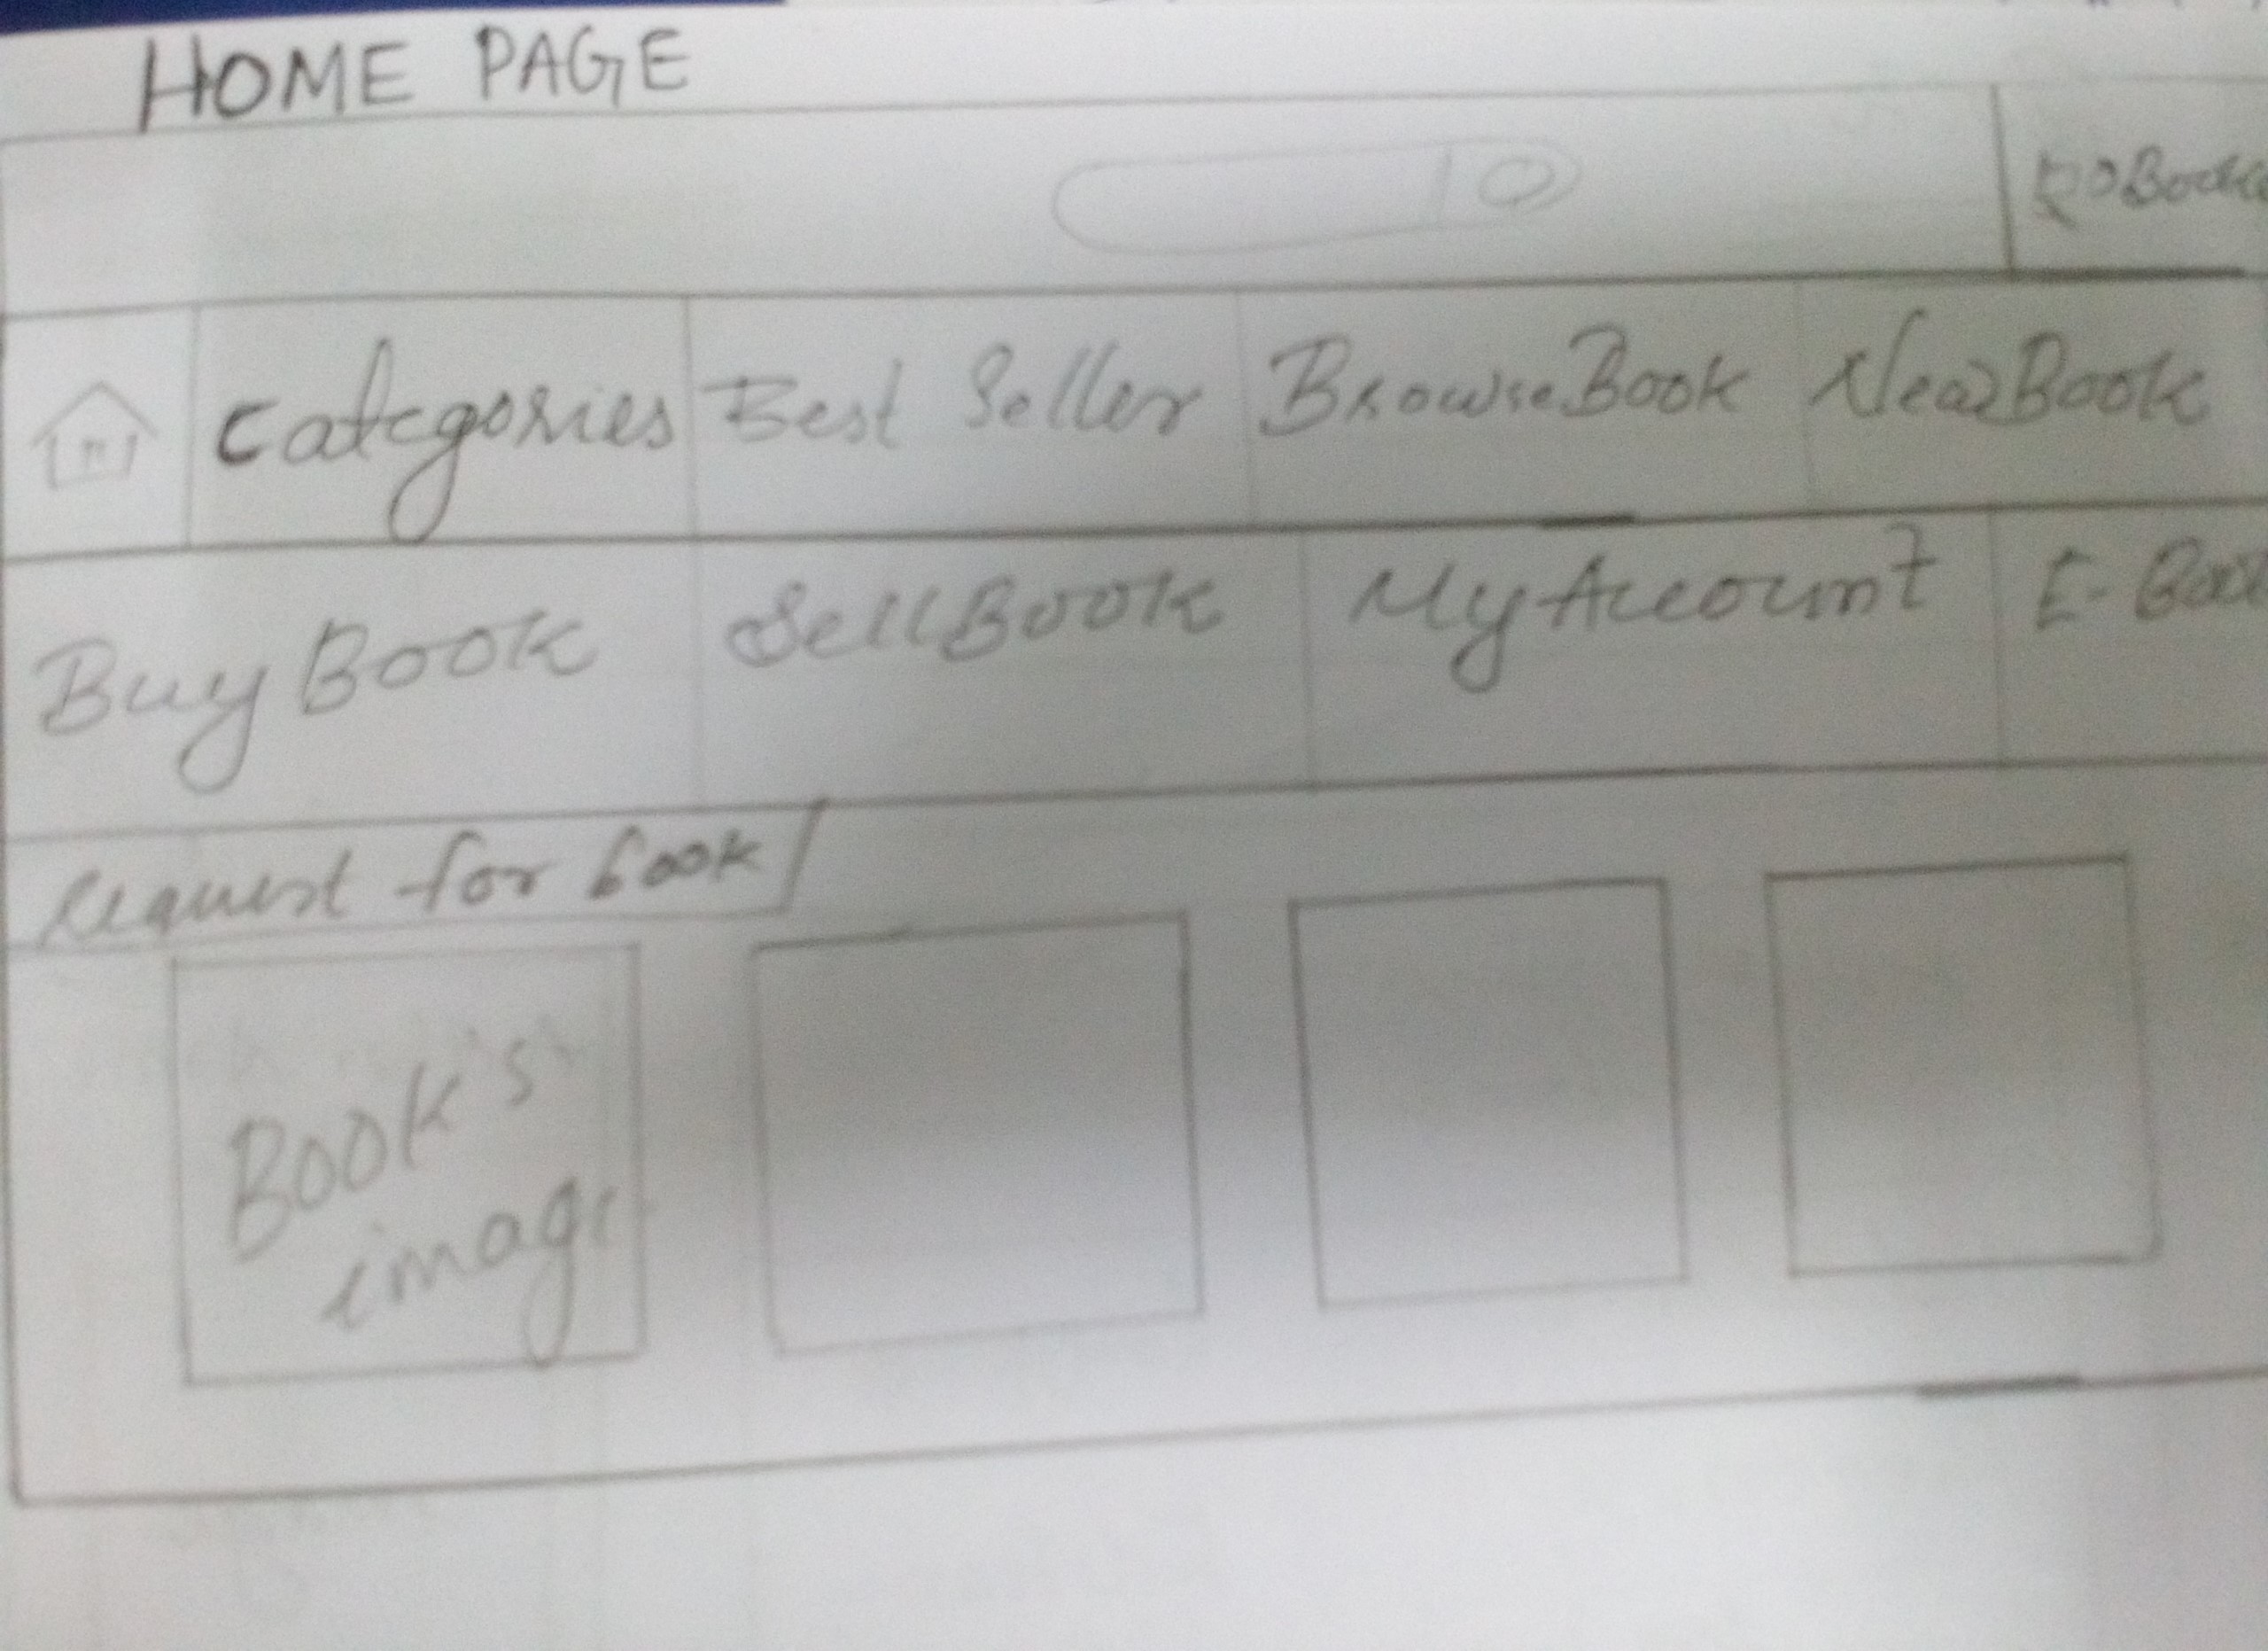 HOME PAGE
Categories Best Seller BrowseBook NewBook
Buy Book SellBook MyAccount E-Book
Request for book
Book's
image